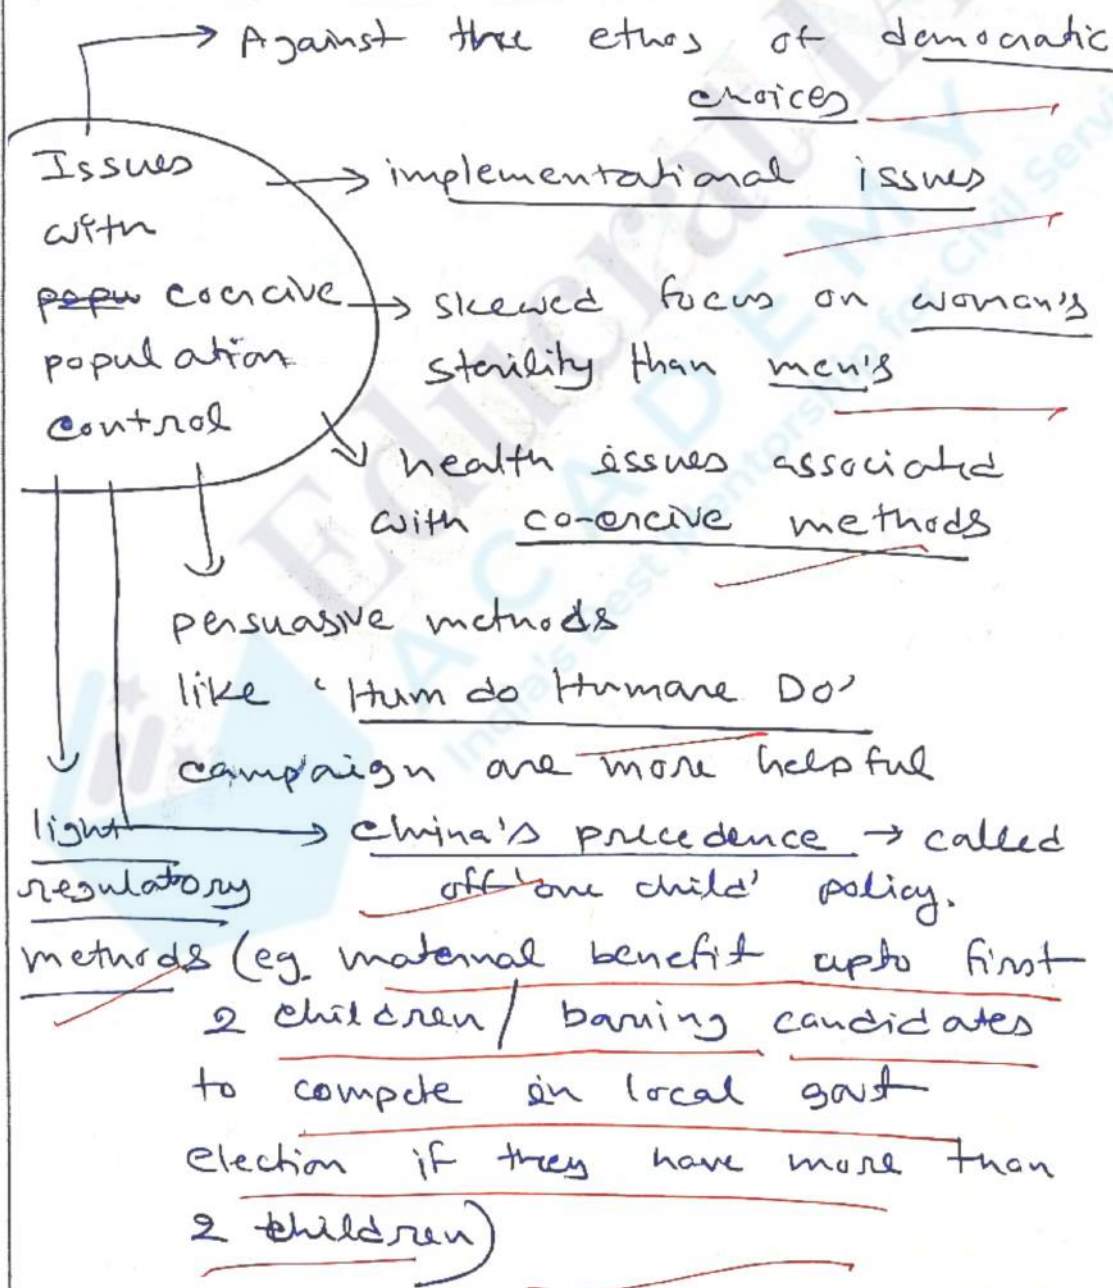 → Against the ethos of democratic
choices
Issues
with
popu coercive
population
control
→ implementational issues
→ skewed focus on woman's
sterility than men's
health issues associated
with co-ercive methods
persuasive methods
like 'Hum do Humare Do'
campaign are more helpful
light
regulatory
methods (eg. maternal benefit upto first
→ China's precedence → called
off 'one child' policy.
2 children / barring candidates
to compete in local govt
election if they have more than
2 children)
Educrat IA
ACADEMY
India's Best Mentorship for Civil Servi